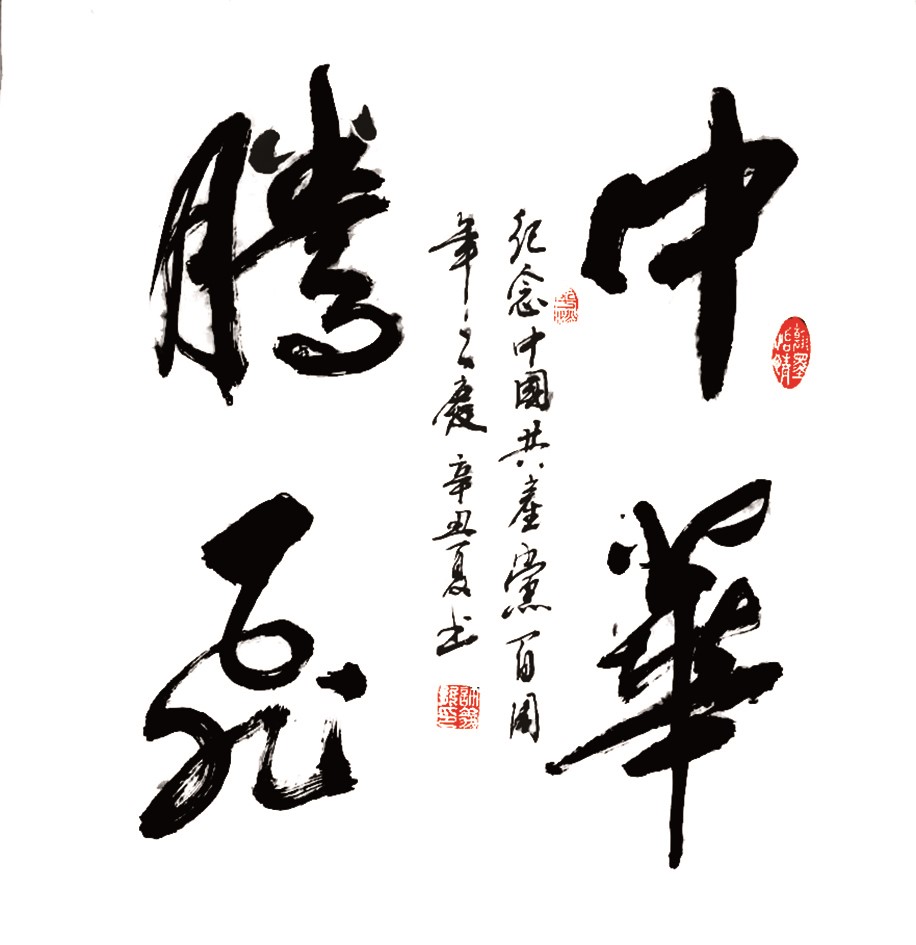 中華
騰飛
紀念中國共產黨百周
年之慶辛丑夏书